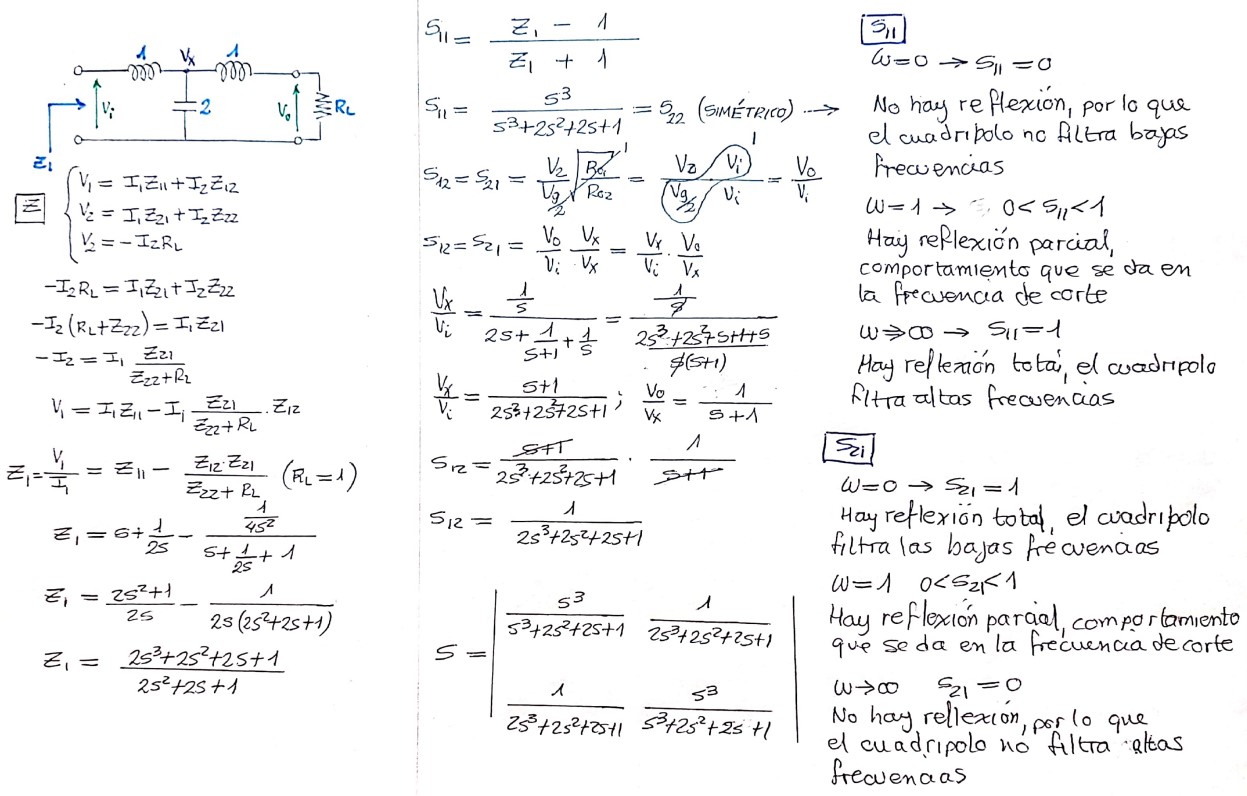 1 Vx 1
Vi 2 Vo RL
Z1
Z
V1 = I1Z11 + I2Z12
V2 = I1Z21 + I2Z22
V2 = -I2RL
-I2RL = I1Z21 + I2Z22
-I2(RL+Z22) = I1Z21
-I2 = I1 Z21/(Z22+RL)
V1 = I1Z11 - I1 Z21/(Z22+RL) · Z12
Z1 = V1/I1 = Z11 - Z12·Z21/(Z22+RL) (RL=1)
Z1 = s + 1/2s - (1/4s²)/(s + 1/2s + 1)
Z1 = (2s²+1)/2s - 1/(2s(2s²+2s+1))
Z1 = (2s³+2s²+2s+1)/(2s²+2s+1)
S11 = (Z1 - 1)/(Z1 + 1)
S11 = s³/(s³+2s²+2s+1) = S22 (SIMÉTRICO) →
S12 = S21 = V2/(Vg/2) √(R01/R02) 1 = V2/(Vg/2) · Vi/Vi 1 = Vo/Vi
S12 = S21 = Vo/Vi · Vx/Vx = Vx/Vi · Vo/Vx
Vx/Vi = (1/s)/(2s + 1/(s+1) + 1/s) = (1/s)/((2s³+2s²+s+1+s)/(s(s+1)))
Vx/Vi = (s+1)/(2s³+2s²+2s+1) ; Vo/Vx = 1/(s+1)
S12 = (s+1)/(2s³+2s²+2s+1) · 1/(s+1)
S12 = 1/(2s³+2s²+2s+1)
S = | s³/(s³+2s²+2s+1) 1/(2s³+2s²+2s+1) |
| 1/(2s³+2s²+2s+1) s³/(s³+2s²+2s+1) |
S11
ω=0 → S11 = 0
No hay reflexión, por lo que
el cuadripolo no filtra bajas
frecuencias
ω=1 → 0 < S11 < 1
Hay reflexión parcial,
comportamiento que se da en
la frecuencia de corte
ω→∞ → S11 = 1
Hay reflexión total, el cuadripolo
filtra altas frecuencias
S21
ω=0 → S21 = 1
Hay reflexión total, el cuadripolo
filtra las bajas frecuencias
ω=1 0<S21<1
Hay reflexión parcial, comportamiento
que se da en la frecuencia de corte
ω→∞ S21 = 0
No hay reflexión, por lo que
el cuadripolo no filtra altas
frecuencias